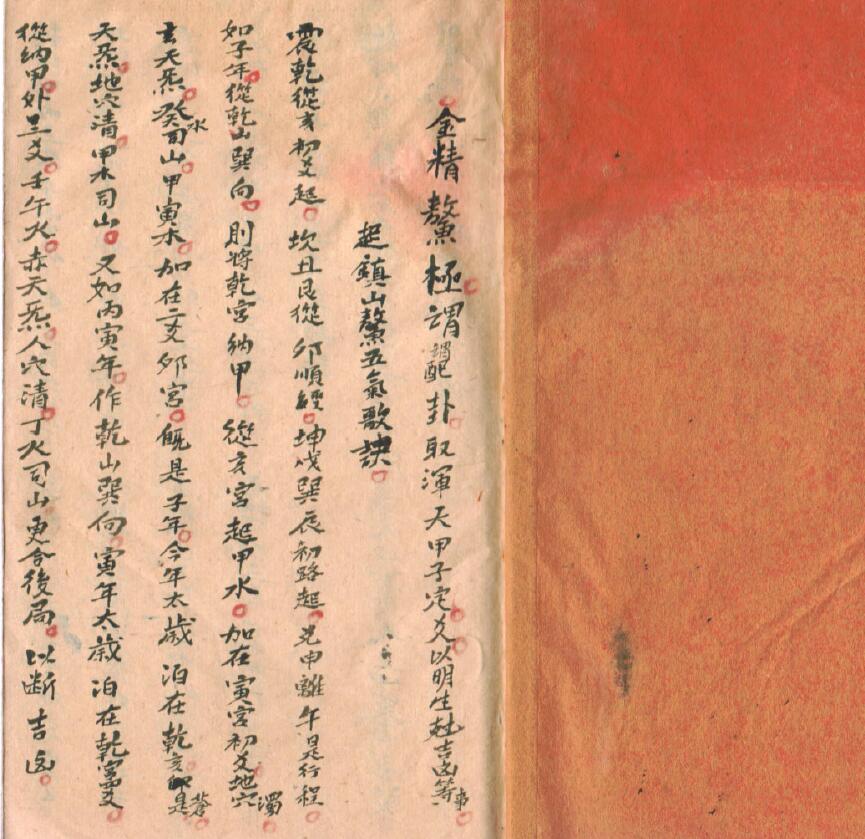 金精鰲極謂謂配卦取渾天甲子定爻以明生尅吉凶等事
起鎮山鰲五氣歌訣
震乾從亥初爻起坎丑艮從卯順經坤戌巽辰初路起兌申離午是行程
如子年從乾山巽向則將乾宮納甲從亥宮起甲水加在寅宮初爻地穴濁
玄天炁癸水司山甲寅木加在二爻卯宮既是子年今年太歲泊在乾亥卯是蒼
天炁地穴清甲木司山又如丙寅年作乾山巽向寅年太歲泊在乾宮四爻
從納甲外三爻壬午火赤天炁人穴清丁火司山更合後局以斷吉凶